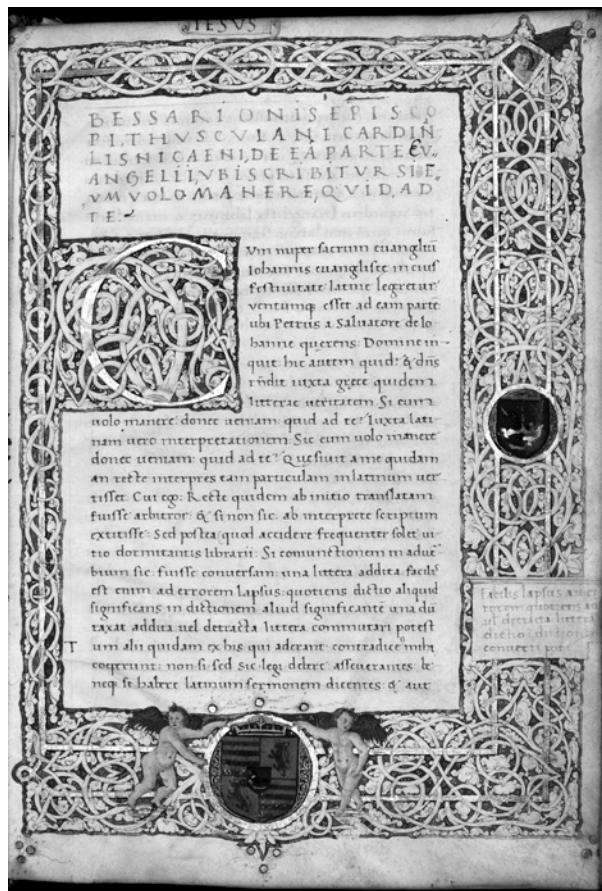 IESUS
BESSARIONIS EPISCO
PI, THUSCULANI CARDIN̄
LIS NICAENI, DE EA PARTE EV̄
ANGELII, UBI SCRIBITUR SI Ē
VM VOLO MANERE, QVID AD
TE
Cum nuper sacrum euangliū
Iohannis euangliste in eius
festiuitate latine legretur
uentumq; esset ad eam partē
ubi Petrus a Saluatore de Io
hanne querens: Domine in-
quit: hic autem quid? & dn̄s
rn̄dit iuxta grece quidem
litterae ueritatem. Si eum
uolo manere: donec ueniam: quid ad te? Iuxta lati
nam uero interpretationem: Sic eum uolo manere
donec ueniam: quid ad te? Quesiuit a me quidam
an recte interpres eam particulam in latinum uer
tisset. Cui ego: Recte quidem ab initio translatam
fuisse arbitror: & si non sic: ab interprete scriptum
extitisse: Sed postea (quod accidere frequenter solet ui
tio dormitantis librarii: Si coniunctionem in aduer
bium sic: fuisse conuersam: una littera addita facil
est enim ad errorem lapsus: quotiens dictio aliquid
significans in dictionem aliud significantē una dū
taxat addita uel detracta littera commutari potest
T um alii quidam ex his qui aderant: contradice mihi
coeperunt: non si: sed sic legi debere asseuerantes: be
neq; se habere latinum sermonem dicentes: & aut
Facilis lapsus ad er
rorem quotiens ad
uel detracta littera
dictio: dictione
conuerti pote